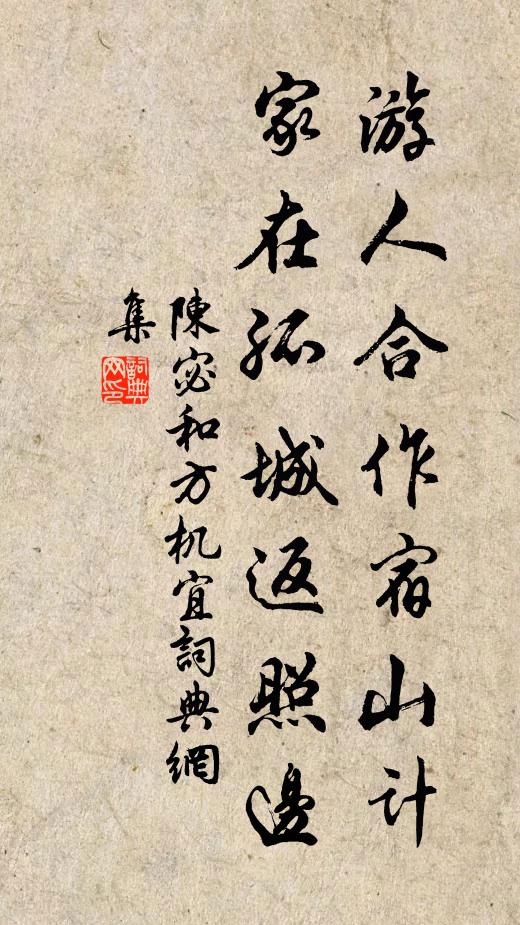 游人合作宿山計
家在孤城返照邊
陳宓和方机宜詞典網
集
詞典
网印